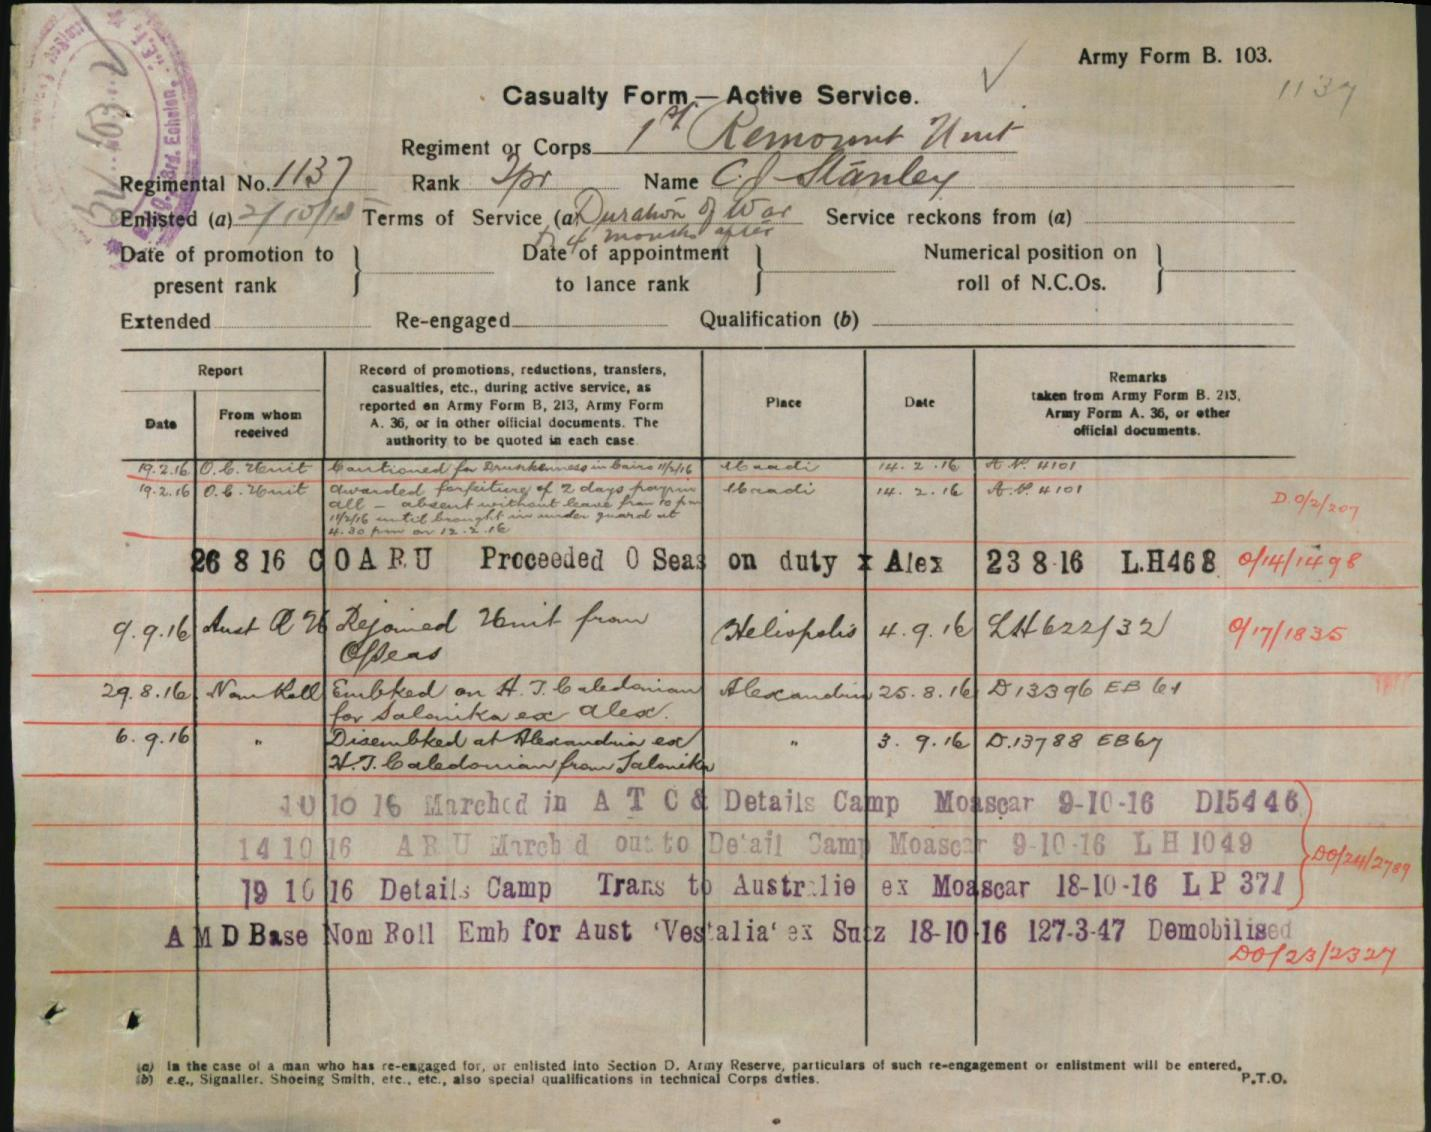 Army Form B. 103.
1137
Casualty Form — Active Service.
Regiment or Corps 1st Remount Unit
Regimental No. 1137 Rank Tpr Name C J Stanley
Enlisted (a) 2/10/15 Terms of Service (a) Duration of War
& 4 months after
Service reckons from (a)
Date of promotion to present rank
Date of appointment to lance rank
Numerical position on roll of N.C.Os.
Extended Re-engaged Qualification (b)
Report
Date
From whom received
Record of promotions, reductions, transfers,
casualties, etc., during active service, as
reported on Army Form B, 213, Army Form
A. 36, or in other official documents. The
authority to be quoted in each case.
Place
Date
Remarks
taken from Army Form B. 213,
Army Form A. 36, or other
official documents.
19.2.16 O.C. Unit Cautioned for Drunkenness in Cairo 11/2/16 Maadi 14.2.16 4101
19.2.16 O.C. Unit awarded forfeiture of 2 days pay Maadi 14.2.16 4101
all — absent without leave from 10 pm
11/2/16 until brought in under guard at
4.30 pm on 12.2.16
D.O/2/207
26 8 16 C O A R U Proceeded O Seas on duty x Alex 23 8 16 L.H468 O/14/1498
9.9.16 Aust R U Rejoined Unit from Heliopolis 4.9.16 LH622/32 O/17/1835
O/Seas
29.8.16 Nom Roll Embked on H.T. Caledonian Alexandria 25.8.16 D13396 EB61
for Salonika ex Alex.
6.9.16 " Disembked at Alexandria ex " 3.9.16 D.13788 EB67
H.T. Caledonian from Salonika
10 10 16 Marched in A T C & Details Camp Moascar 9-10-16 D15446
14 10 16 A R U March d out to Detail Camp Moascar 9-10-16 L H 1049
DO/24/2789
19 10 16 Details Camp Trans to Australie ex Moascar 18-10-16 L P 371
A M D Base Nom Roll Emb for Aust 'Vestalia' ex Suez 18-10-16 127-3-47 Demobilised
DO/23/2327
(a) In the case of a man who has re-engaged for, or enlisted into Section D. Army Reserve, particulars of such re-engagement or enlistment will be entered.
(b) e.g., Signaller, Shoeing Smith, etc., etc., also special qualifications in technical Corps duties.
P.T.O.